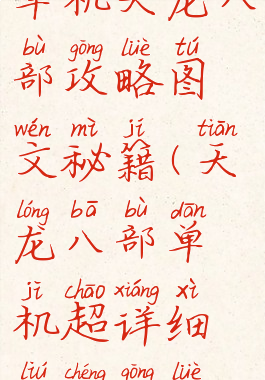 单机天龙八
bù gōng lüè tú
部攻略图
wén mì jí tiān
文秘籍(天
lóng bā bù dān
龙八部单
jī chāo xiáng xì
机超详细
liú chéng gōng lüè